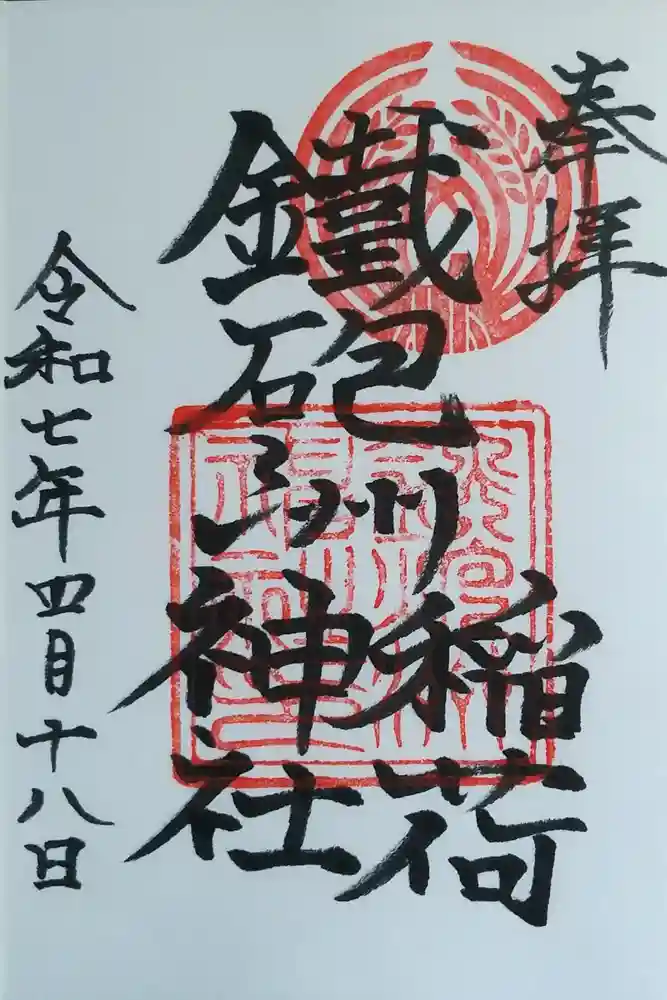 奉拝
鐵砲洲
稲荷
神社
令和七年四月十八日